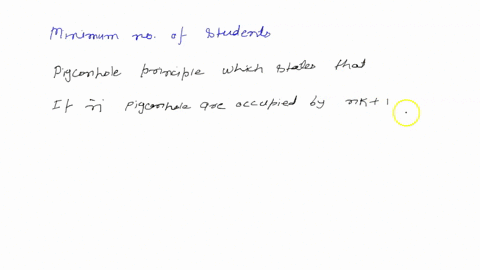 Minimum no. of students
Pigeonhole principle which states that
If n pigeonhole are occupied by nK+1